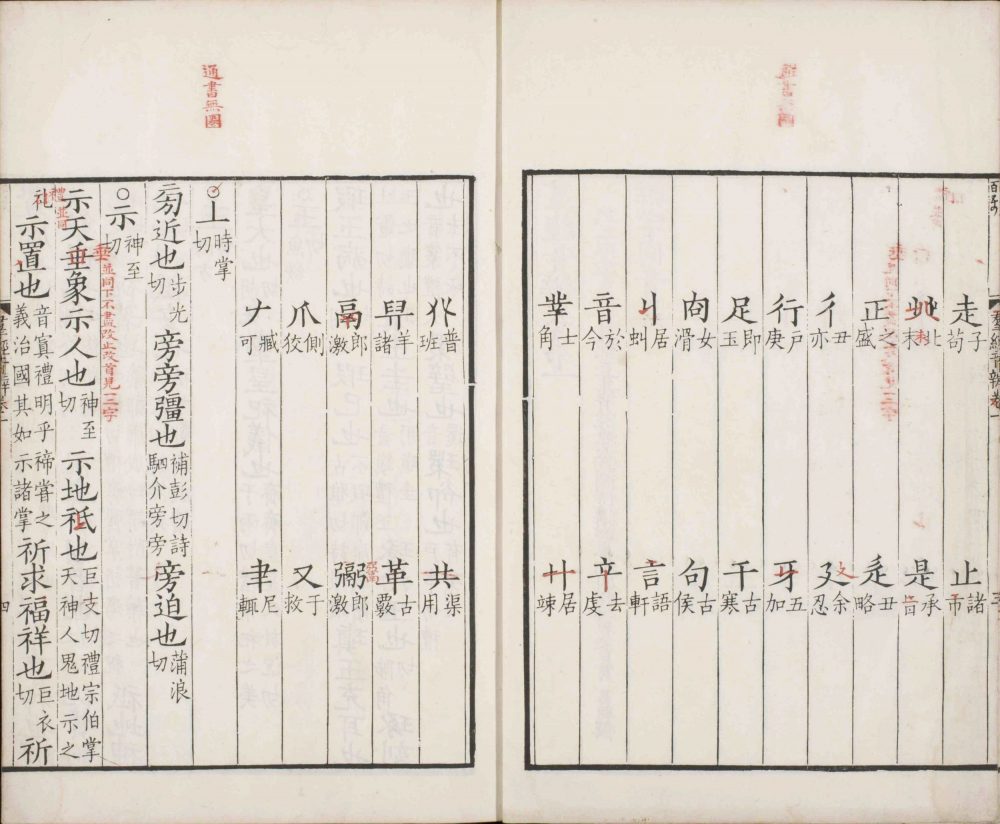 走子苟 止諸市
艸北末 是承旨
正之盛 辵丑略
彳丑亦 廴余忍
行戶庚 牙五加
足即玉 干古寒
㕯女滑 句古侯
丩居虯 言語軒
音於今 䇂去虔
丵士角 廾居竦
通書無圏
𠬜普班 共渠用
舁羊諸 革古覈
鬲郎激 䰜郎激
爪側狡 又于救
𠂇臧可 聿尼輒
○丄時掌切
旁近也步光切 旁旁彊也補彭切詩駟介旁旁 旁迫也蒲浪切
○示神至切
示天垂象示人也神至切 示地祇也巨支切禮宗伯掌天神人鬼地示之
礼 示置也音寘禮明乎禘嘗之義治國其如示諸掌 祈求福祥也巨衣切 祈
禮並同
四